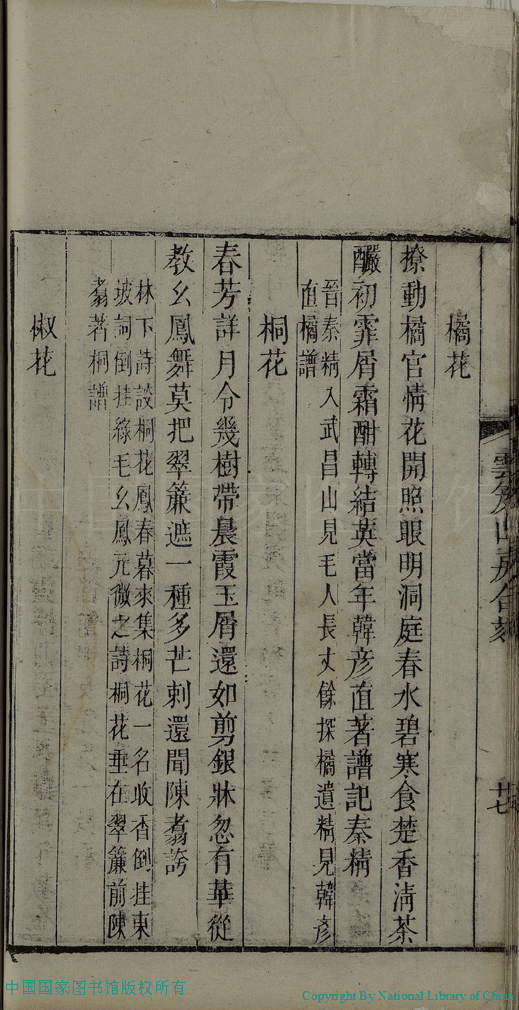 橘花
撩動橘官情花開照眼明洞庭春水碧寒食楚香清茶
釅初霏屑霜酣轉結英當年韓彥直著譜記秦精
晉秦精入武昌山見毛人長丈餘探橘遺精見韓彥
直橘譜
桐花
春芳詳月令幾樹帶晨霞玉屑還如剪銀牀忽有華從
教么鳳舞莫把翠簾遮一種多芒刺還聞陳翥誇
林下詩談桐花鳳春暮來集桐花一名收香倒挂東
坡詞倒挂綠毛么鳳元微之詩桐花垂在翠簾前陳
翥茗桐譜
椒花
山房合刻
廿七
中国国家图书馆版权所有
Copyright By National Library of China